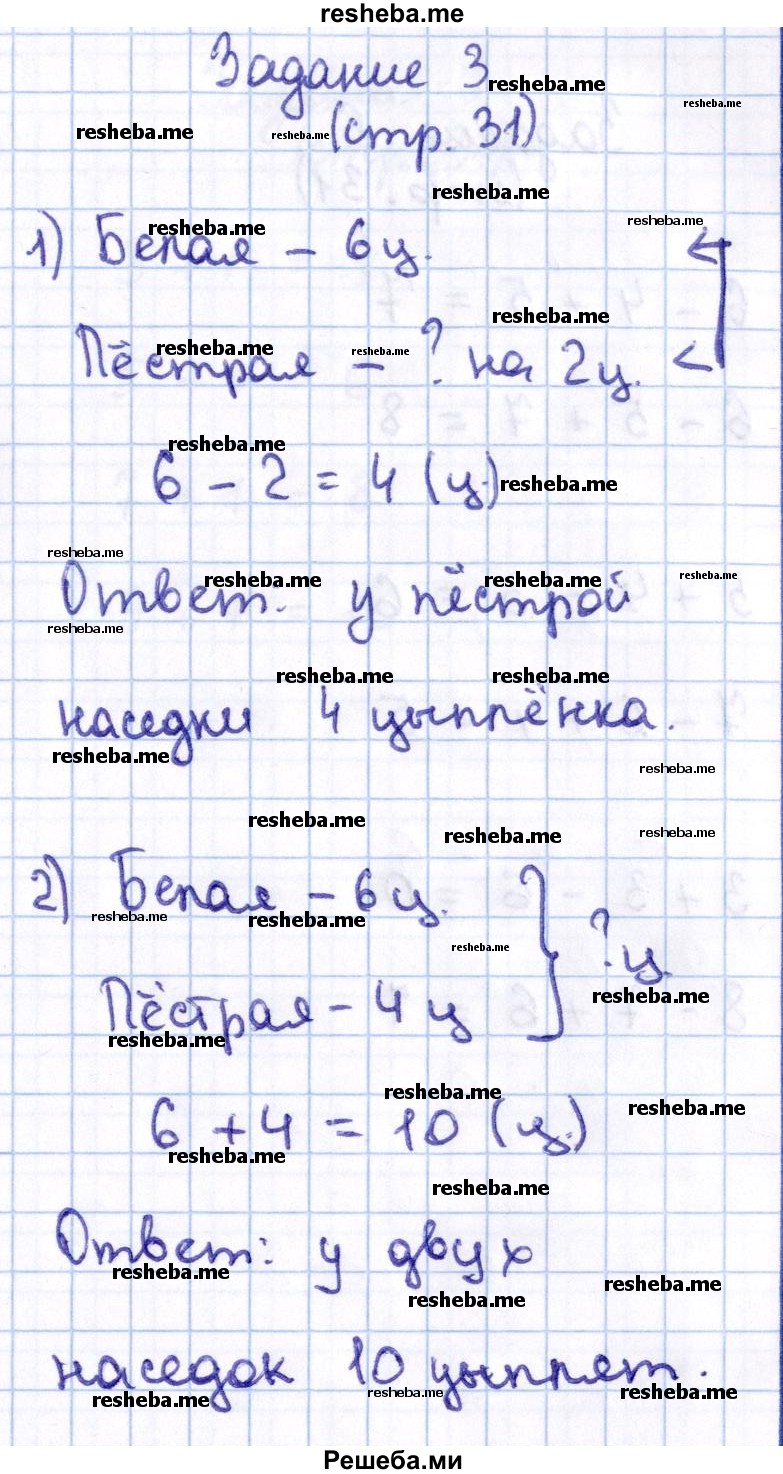 resheba.me
Задание 3
(стр. 31)
1) Белая – 6 ц.
Пёстрая – ? на 2 ц.
6 – 2 = 4 (ц.)
Ответ: у пёстрой
наседки 4 цыплёнка.
2) Белая – 6 ц.
? ц.
Пёстрая – 4 ц
6 + 4 = 10 (ц.)
Ответ: у двух
наседок 10 цыплят.
Решеба.ми